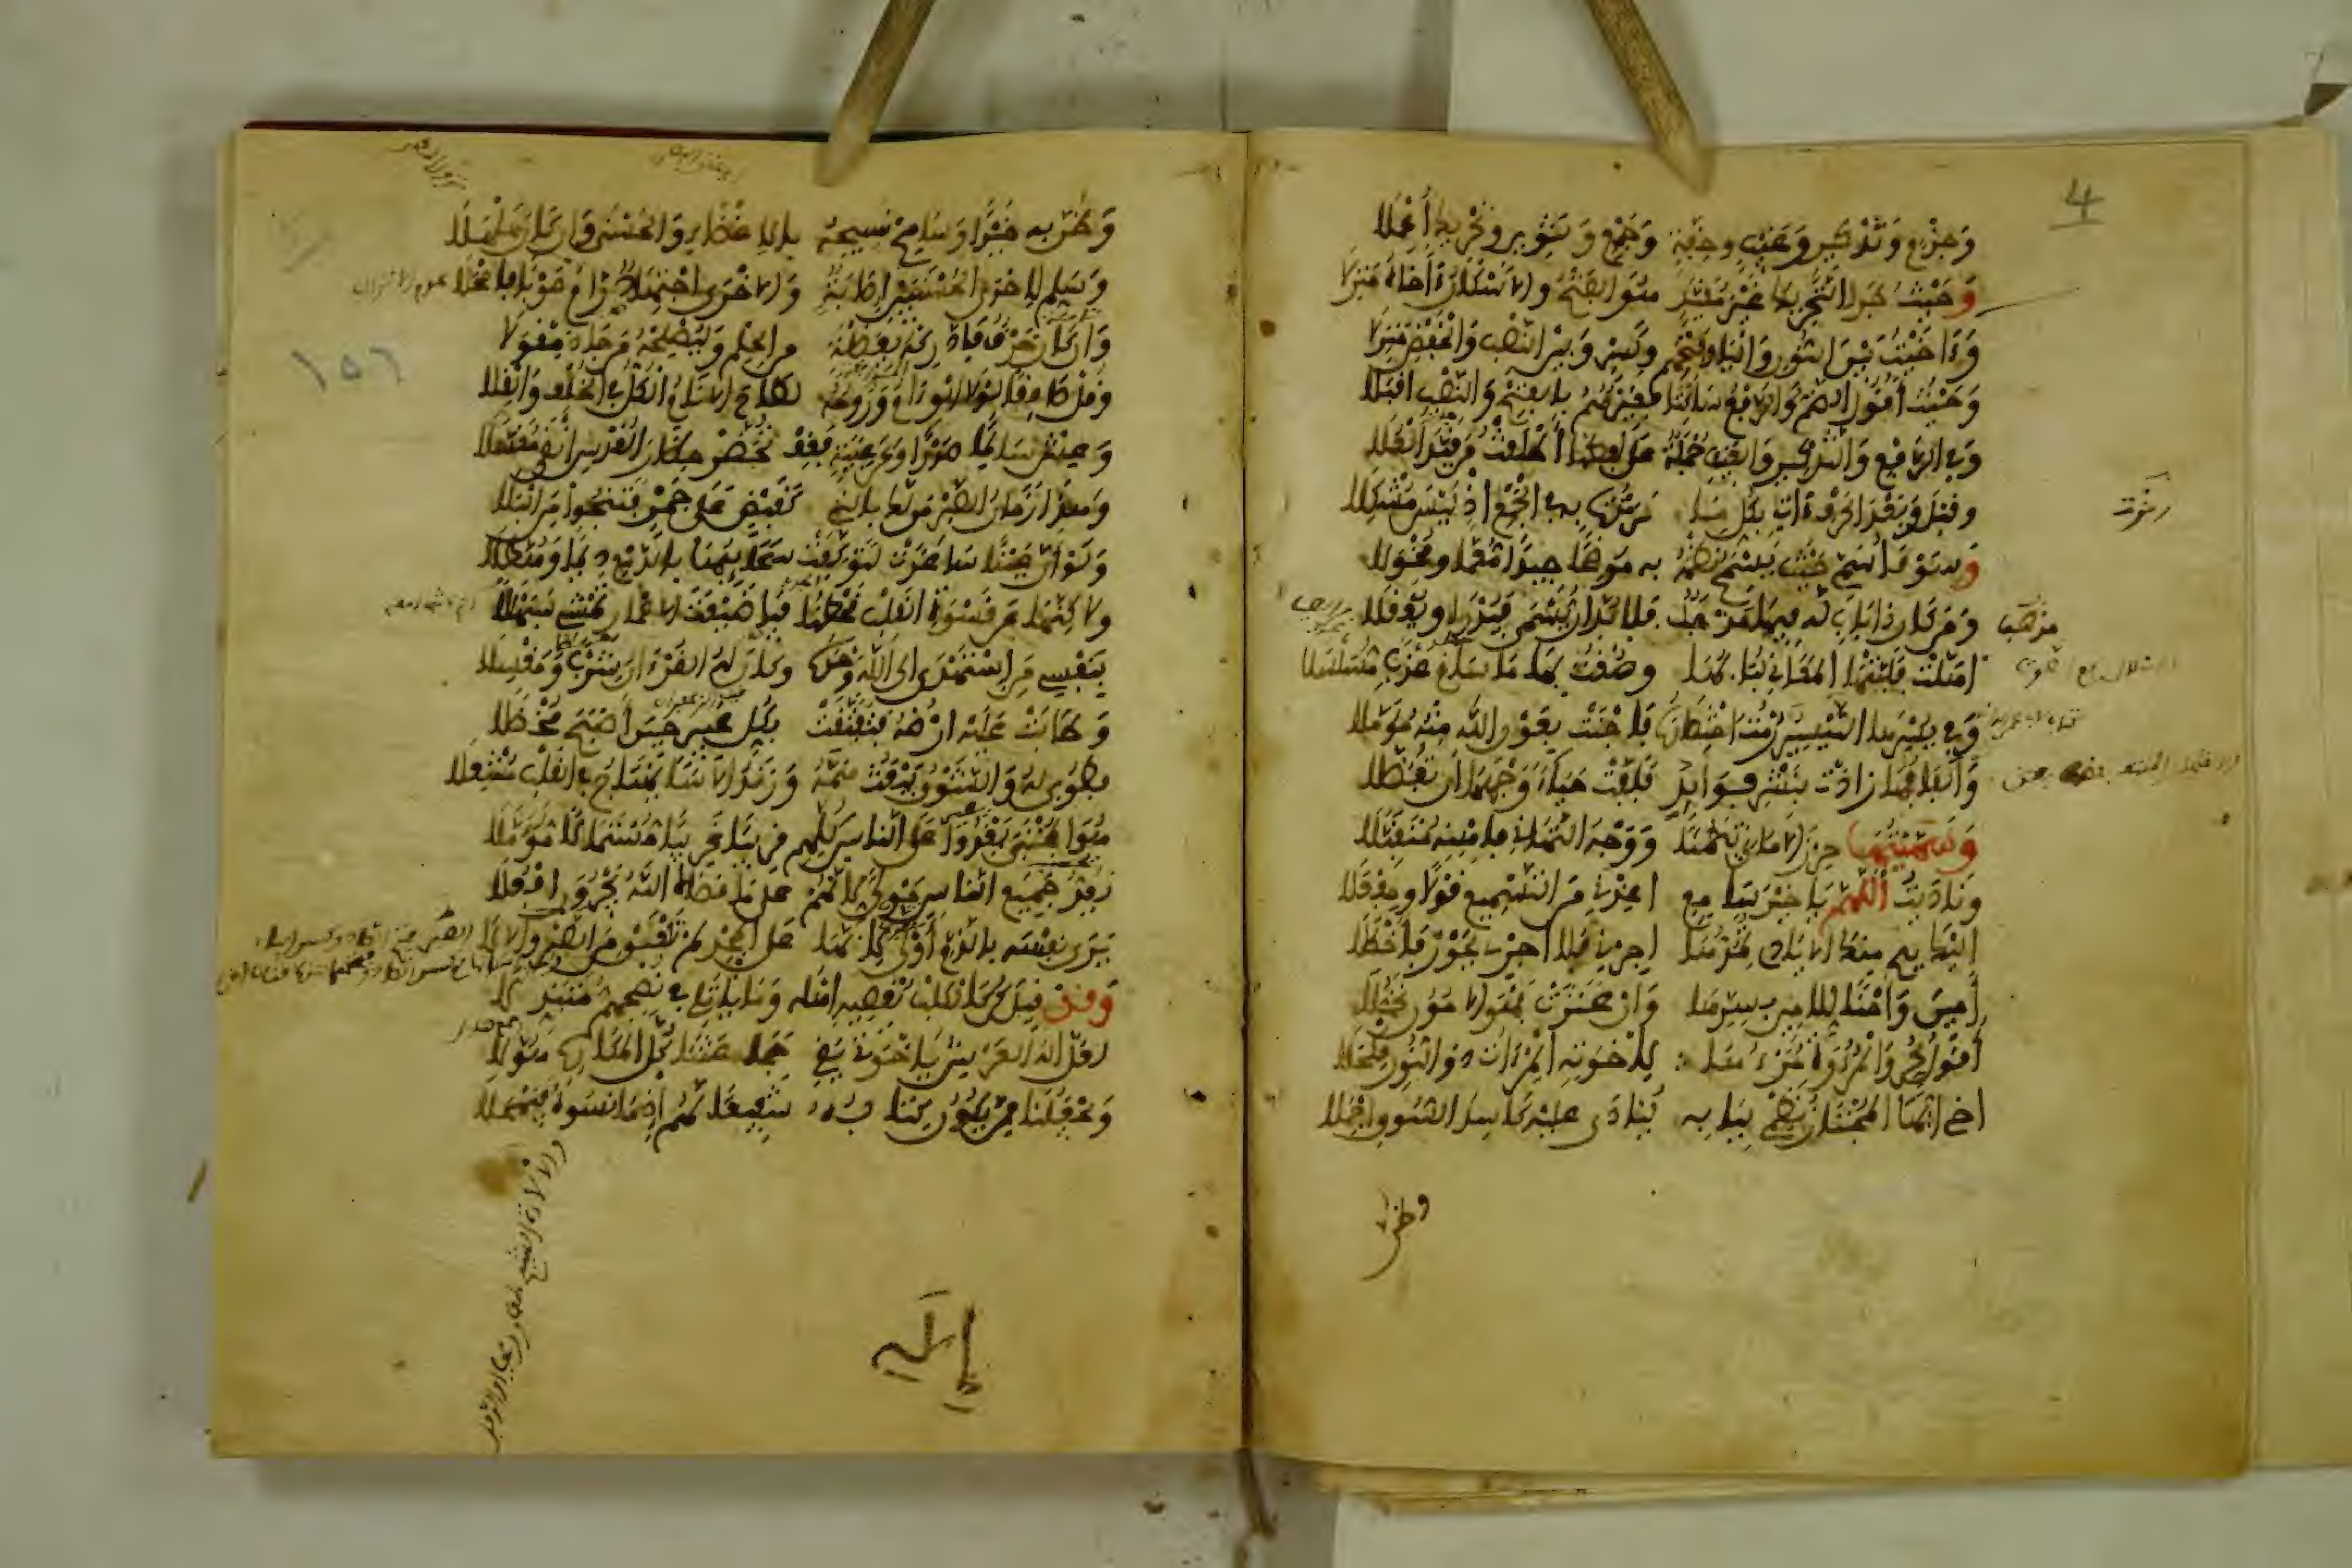 4
وَجَزْمٍ وَتَذْكِيرٍ وَغَيْبٍ وَخِفَّةٍ وَجَمْعٍ وَتَنْوِينٍ وَتَحْرِيكٍ أُعْمِلَا
وَحَيْثُ جَرَى التَّحْرِيكُ غَيْرَ مُقَيَّدٍ هُوَ الْفَتْحُ وَالْإِسْكَانُ ءَاخَاهُ مَنْزِلَا
وَءَاخَيْتُ بَيْنَ النُّونِ وَالْيَا وَفَتْحِهِمْ وَكَسْرٍ وَبَيْنَ النَّصْبِ وَالْخَفْضِ مُنْزِلَا
وَحَيْثُ أَقُولُ الضَّمُّ وَالرَّفْعُ سَاكِتًا فَغَيْرُهُمُ بِالْفَتْحِ وَالنَّصْبِ أَقْبَلَا
وَفِي الرَّفْعِ وَالتَّذْكِيرِ وَالْغَيْبِ جُمْلَةٌ عَلَى لَفْظِهَا أَطْلَقْتُ مَنْ قَيَّدَ الْعُلَا
وَقَبْلَ وَبَعْدَ الْحَرْفِ ءَاتِي بِكُلِّ مَا رَمَزْتُ بِهِ فِي الْجَمْعِ إِذْ لَيْسَ مُشْكِلَا
رمزت
وَسَوْفَ أُسَمِّي حَيْثُ يَسْمَحُ نَظْمُهُ بِهِ مُوضِحًا جِيدًا مُعَمًّا وَمُخْوَلَا
وَمَنْ كَانَ ذَا بَابٍ لَهُ فِيهِ مَذْهَبٌ فَلَا بُدَّ أَنْ يُسْمَى فَيُدْرَى وَيُعْقَلَا
مذهب
أَهَلَّتْ فَلَبَّتْهَا الْمَعَانِي لُبَابُهَا وَصُغْتُ بِهَا مَا سَاغَ عَذْبًا مُسَلْسَلَا
وَفِي يُسْرِهَا التَّيْسِيرُ رُمْتُ اخْتِصَارَهُ فَأَجْنَتْ بِعَوْنِ اللهِ مِنْهُ مُؤَمَّلَا
وَأَلْفَافُهَا زَادَتْ بِنَشْرِ فَوَائِدٍ فَلَفَّتْ حَيَاءً وَجْهَهَا أَنْ تُفَضَّلَا
وَسَمَّيْتُهَا حِرْزَ الْأَمَانِي تَيَمُّنًا وَوَجْهَ التَّهَانِي فَاهْنِهِ مُتَقَبِّلَا
وَنَادَيْتُ أَللَّهُمَّ يَا خَيْرَ سَامِعٍ أَعِذْنِي مِنَ التَّسْمِيعِ قَوْلًا وَمِفْعَلَا
إِلَيْكَ يَدِي مِنْكَ الْأَيَادِي تَمُدُّهَا أَجِرْنِي فَلَا أَجْرِي بِجَوْرٍ فَأَخْطَلَا
أَمِينَ وَأَمْنًا لِلْأَمِينِ بِسِرِّهَا وَإِنْ عَثَرَتْ فَهْوَ الْأَمُونُ تَحَمُّلَا
أَقُولُ لِحُرٍّ وَالْمُرُوءَةُ مَرْءُهَا لِإِخْوَتِهِ الْمِرْءَاةُ ذُو النُّورِ مِكْحَلَا
أَخِي أَيُّهَا الْمُجْتَازُ نَظْمِي بِبَابِهِ يُنَادَى عَلَيْهِ كَاسِدَ السُّوقِ أَجْمِلَا
وظن
وَظُنَّ بِهِ خَيْرًا وَسَامِحْ نَسِيجَهُ بِالْإِغْضَاءِ وَالْحُسْنَى وَإِنْ كَانَ هَلْهَلَا
وَسَلِّمْ لِإِحْدَى الْحُسْنَيَيْنِ إِصَابَةٌ وَالْأُخْرَى اجْتِهَادٌ رَامَ صَوْبًا فَأَمْحَلَا
وَإِنْ كَانَ خَرْقٌ فَادَّرِكْهُ بِفَضْلَةٍ مِنَ الْحِلْمِ وَلْيُصْلِحْهُ مَنْ جَادَ مِقْوَلَا
١٥٦
وَقُلْ صَادِقًا لَوْلَا الْوِئَامُ وَرُوحُهُ لَطَاحَ الْأَنَامُ الْكُلُّ فِي الْخُلْفِ وَالْقِلَا
وَعِشْ سَالِمًا صَدْرًا وَعَنْ غِيبَةٍ فَغِبْ تُحَضَّرْ حِظَارَ الْقُدْسِ أَنْقَى مُغَسَّلَا
وَهَذَا زَمَانُ الصَّبْرِ مَنْ لَكَ بِالَّتِي كَقَبْضٍ عَلَى جَمْرٍ فَتَنْجُو مِنَ الْبَلَا
وَلَوْ أَنَّ عَيْنًا سَاعَدَتْ لَتَوَكَّفَتْ سَحَائِبُهَا بِالدَّمْعِ دِيمًا وَهُطَّلَا
وَلَكِنَّهَا عَنْ قَسْوَةِ الْقَلْبِ قَحْطُهَا فَيَا ضَيْعَةَ الْأَعْمَارِ تَمْشِي سَبَهْلَلَا
بِنَفْسِي مَنِ اسْتَهْدَى إِلَى اللهِ وَحْدَهُ وَكَانَ لَهُ الْقُرْءَانُ شِرْبًا وَمَغْسَلَا
وَطَابَتْ عَلَيْهِ أَرْضُهُ فَتَفَتَّقَتْ بِكُلِّ عَبِيرٍ حِينَ أَصْبَحَ مُخْضَلَا
فَطُوبَى لَهُ وَالشَّوْقُ يَبْعَثُ هَمَّهُ وَزَنْدُ الْأَسَى يَهْتَاجُ فِي الْقَلْبِ مُشْعِلَا
هُوَ الْمُجْتَبَى يَغْدُو عَلَى النَّاسِ كُلِّهِمْ قَرِيبًا غَرِيبًا مُسْتَمَالًا مُؤَمَّلَا
يَعُدُّ جَمِيعَ النَّاسِ مَوْلًى لِأَنَّهُمْ عَلَى مَا قَضَاهُ اللهُ يُجْرُونَ أَفْعُلَا
يَرَى نَفْسَهُ بِالذَّمِّ أَوْلَى لِأَنَّهَا عَلَى الْمَجْدِ لَمْ تَلْعَقْ مِنَ الصَّبْرِ وَالْأَلَا
وَقَدْ قِيلَ كُنْ كَالْكَلْبِ يُقْصِيهِ أَهْلُهُ وَمَا يَأْتَلِي فِي نُصْحِهِمْ مُتَبَذِّلَا
لَعَلَّ إِلَهَ الْعَرْشِ يَا إِخْوَتِي يَقِي جَمَاعَتَنَا كُلَّ الْمَكَارِهِ هُوَّلَا
وَيَجْعَلُنَا مِمَّنْ يَكُونُ كِتَابُهُ شَفِيعًا لَهُمْ إِذْ مَا نَسُوهُ فَيَمْحَلَا